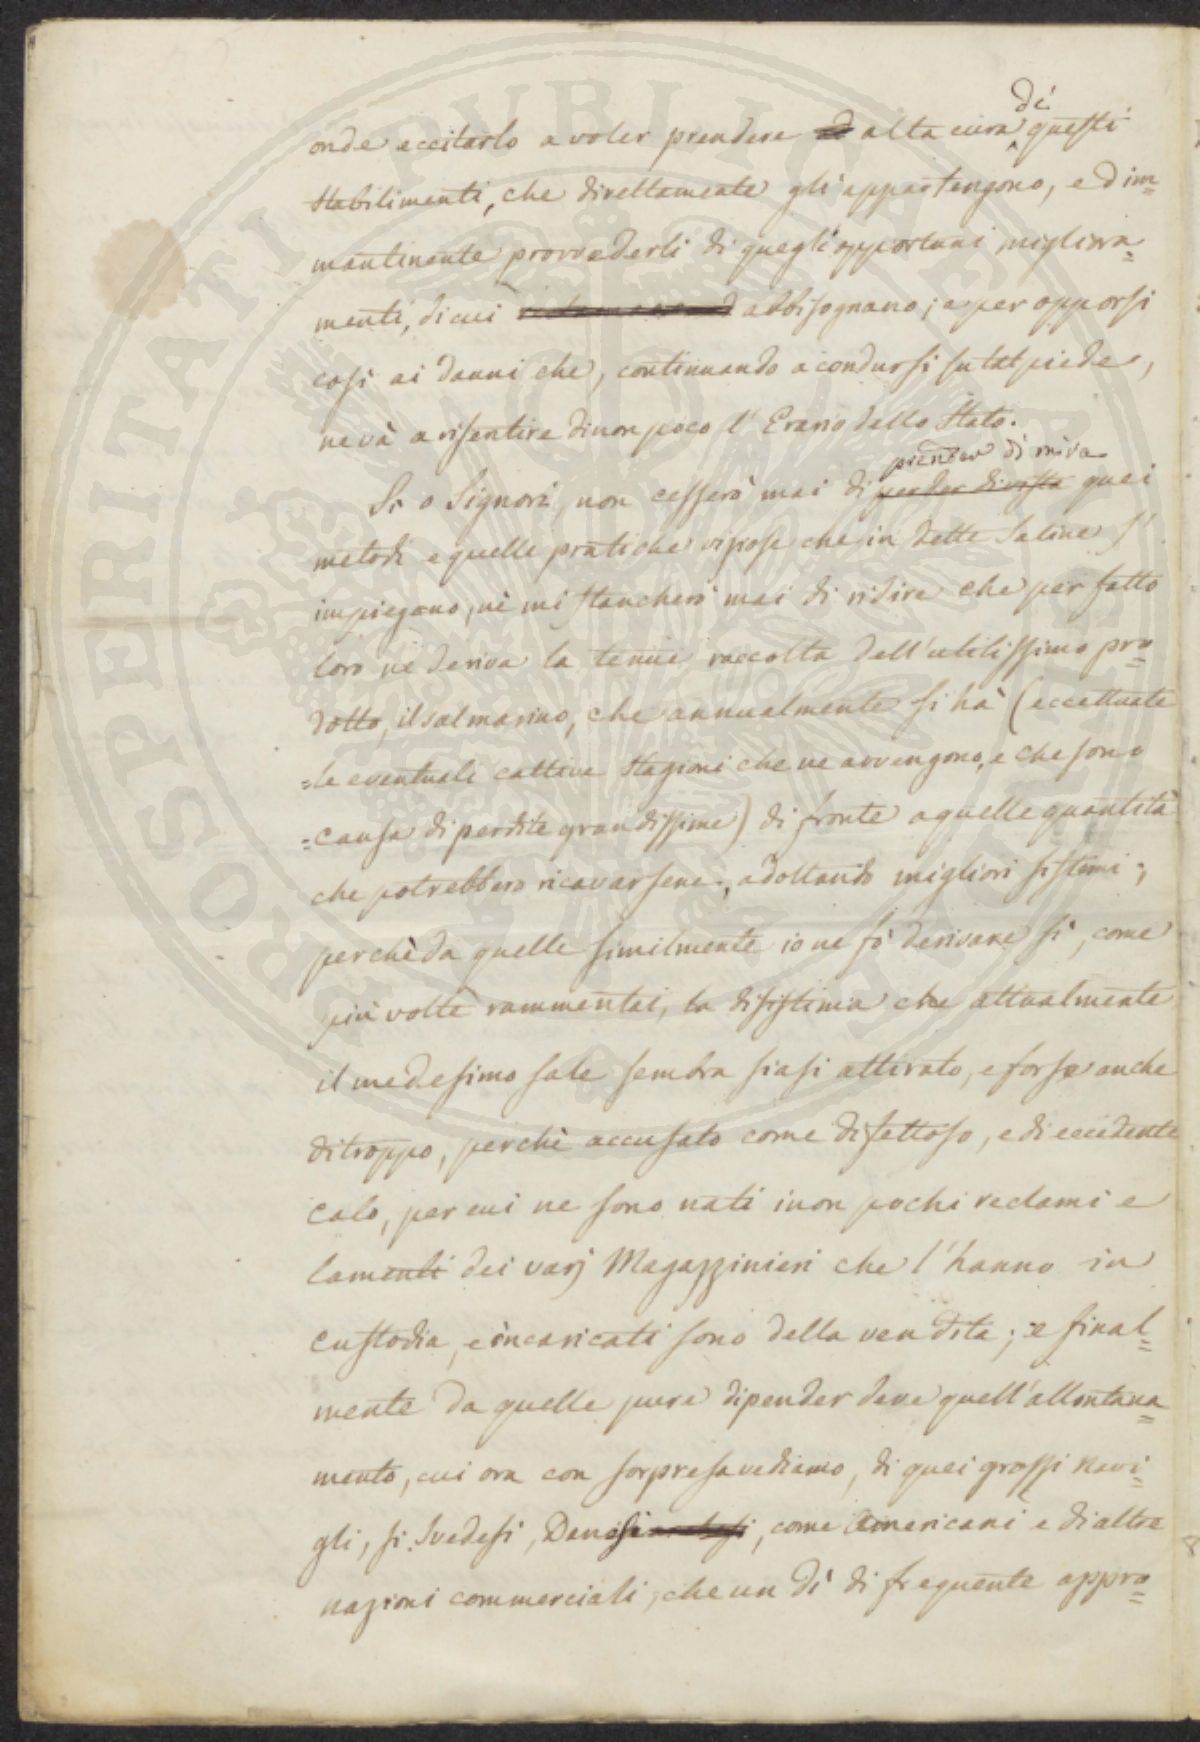 onde eccitarlo a voler prendere alta cura di questi
Stabilimenti, che direttamente gli appartengono, ed im=
mantinente provvederli di quegli opportuni migliora=
menti, di cui abbisognano; e per opporsi
così ai danni che, continuando a condursi su tal piede,
ne và a risentire di non poco l'Erario dello Stato.
Sì o Signori, non cesserò mai di perder di vista prender di mira quei
metodi e quelle pratiche viziose che in dette Saline s'
impiegano, nè mi stancherò mai di ridire che per fatto
loro ne deriva la tenue raccolta dell'utilissimo pro=
dotto, il sal marino, che annualmente si hà (eccettuate
=le eventuali cattive Stagioni che ne avvengono, e che sono
=causa di perdite grandissime) di fronte a quelle quantità
che potrebbero ricavarsene, adottando migliori sistemi;
perchè da quelle similmente io ne fò derivare sì, come
più volte rammentai, la disistima che attualmente
il medesimo sale sembra siasi attirato, e forse anche
di troppo, perchè accusato come difettoso, e di eccedente
calo, per cui ne sono nati i non pochi reclami e
lamenti dei varj Magazzinieri che l'hanno in
custodia, e incaricati sono della vendita; e final=
mente da quelle pure dipender deve quell'allontana=
mento, cui ora con sorpresa vediamo, di quei grossi Navi=
gli, sì Svedesi, Danesi, come Americani e di altre
nazioni commerciali, che un dì di frequente appro=